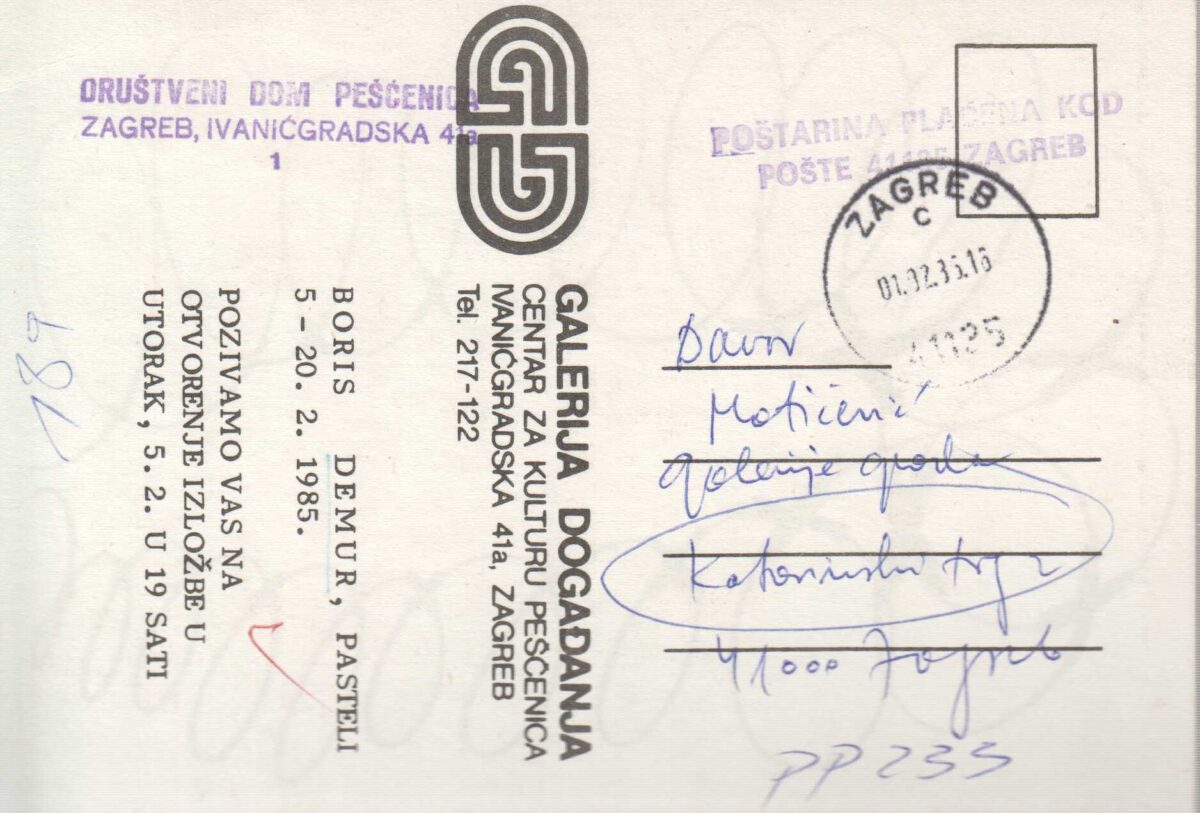 DRUŠTVENI DOM PEŠĆENICA
ZAGREB, IVANIĆGRADSKA 41a
1
POŠTARINA PLAĆENA KOD
POŠTE 41125 ZAGREB
ZAGREB
C
01.02.85.16
41125
GALERIJA DOGAĐANJA
CENTAR ZA KULTURU PEŠČENICA
IVANIĆGRADSKA 41a, ZAGREB
Tel. 217-122
BORIS DEMUR, PASTELI
5 - 20. 2. 1985.
POZIVAMO VAS NA
OTVORENJE IZLOŽBE U
UTORAK, 5. 2. U 19 SATI
Davor
Matičević
Galerije grada
Katarinski trg 2
41000 Zagreb
PP 233